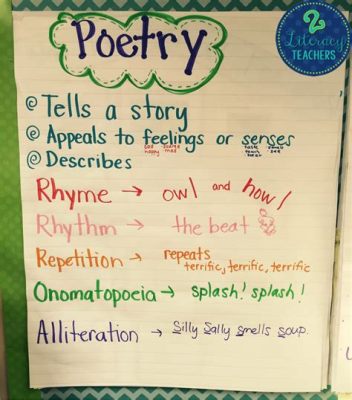 Poetry
2
Literacy
TEACHERS
Tells a story
Appeals to feelings or senses
sad scared taste smell
happy mad touch see
hear
Describes
Rhyme → owl and howl
Rhythm → the beat
Repetition → repeats
terrific, terrific, terrific
Onomatopoeia → splash! splash!
Alliteration → Silly Sally smells soup.